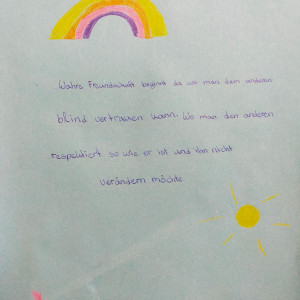 Wahre Freundschaft beginnt da wo man dem anderen
blind vertrauen kann. Wo man den anderen
respektiert so wie er ist und ihn nicht
verändern möchte